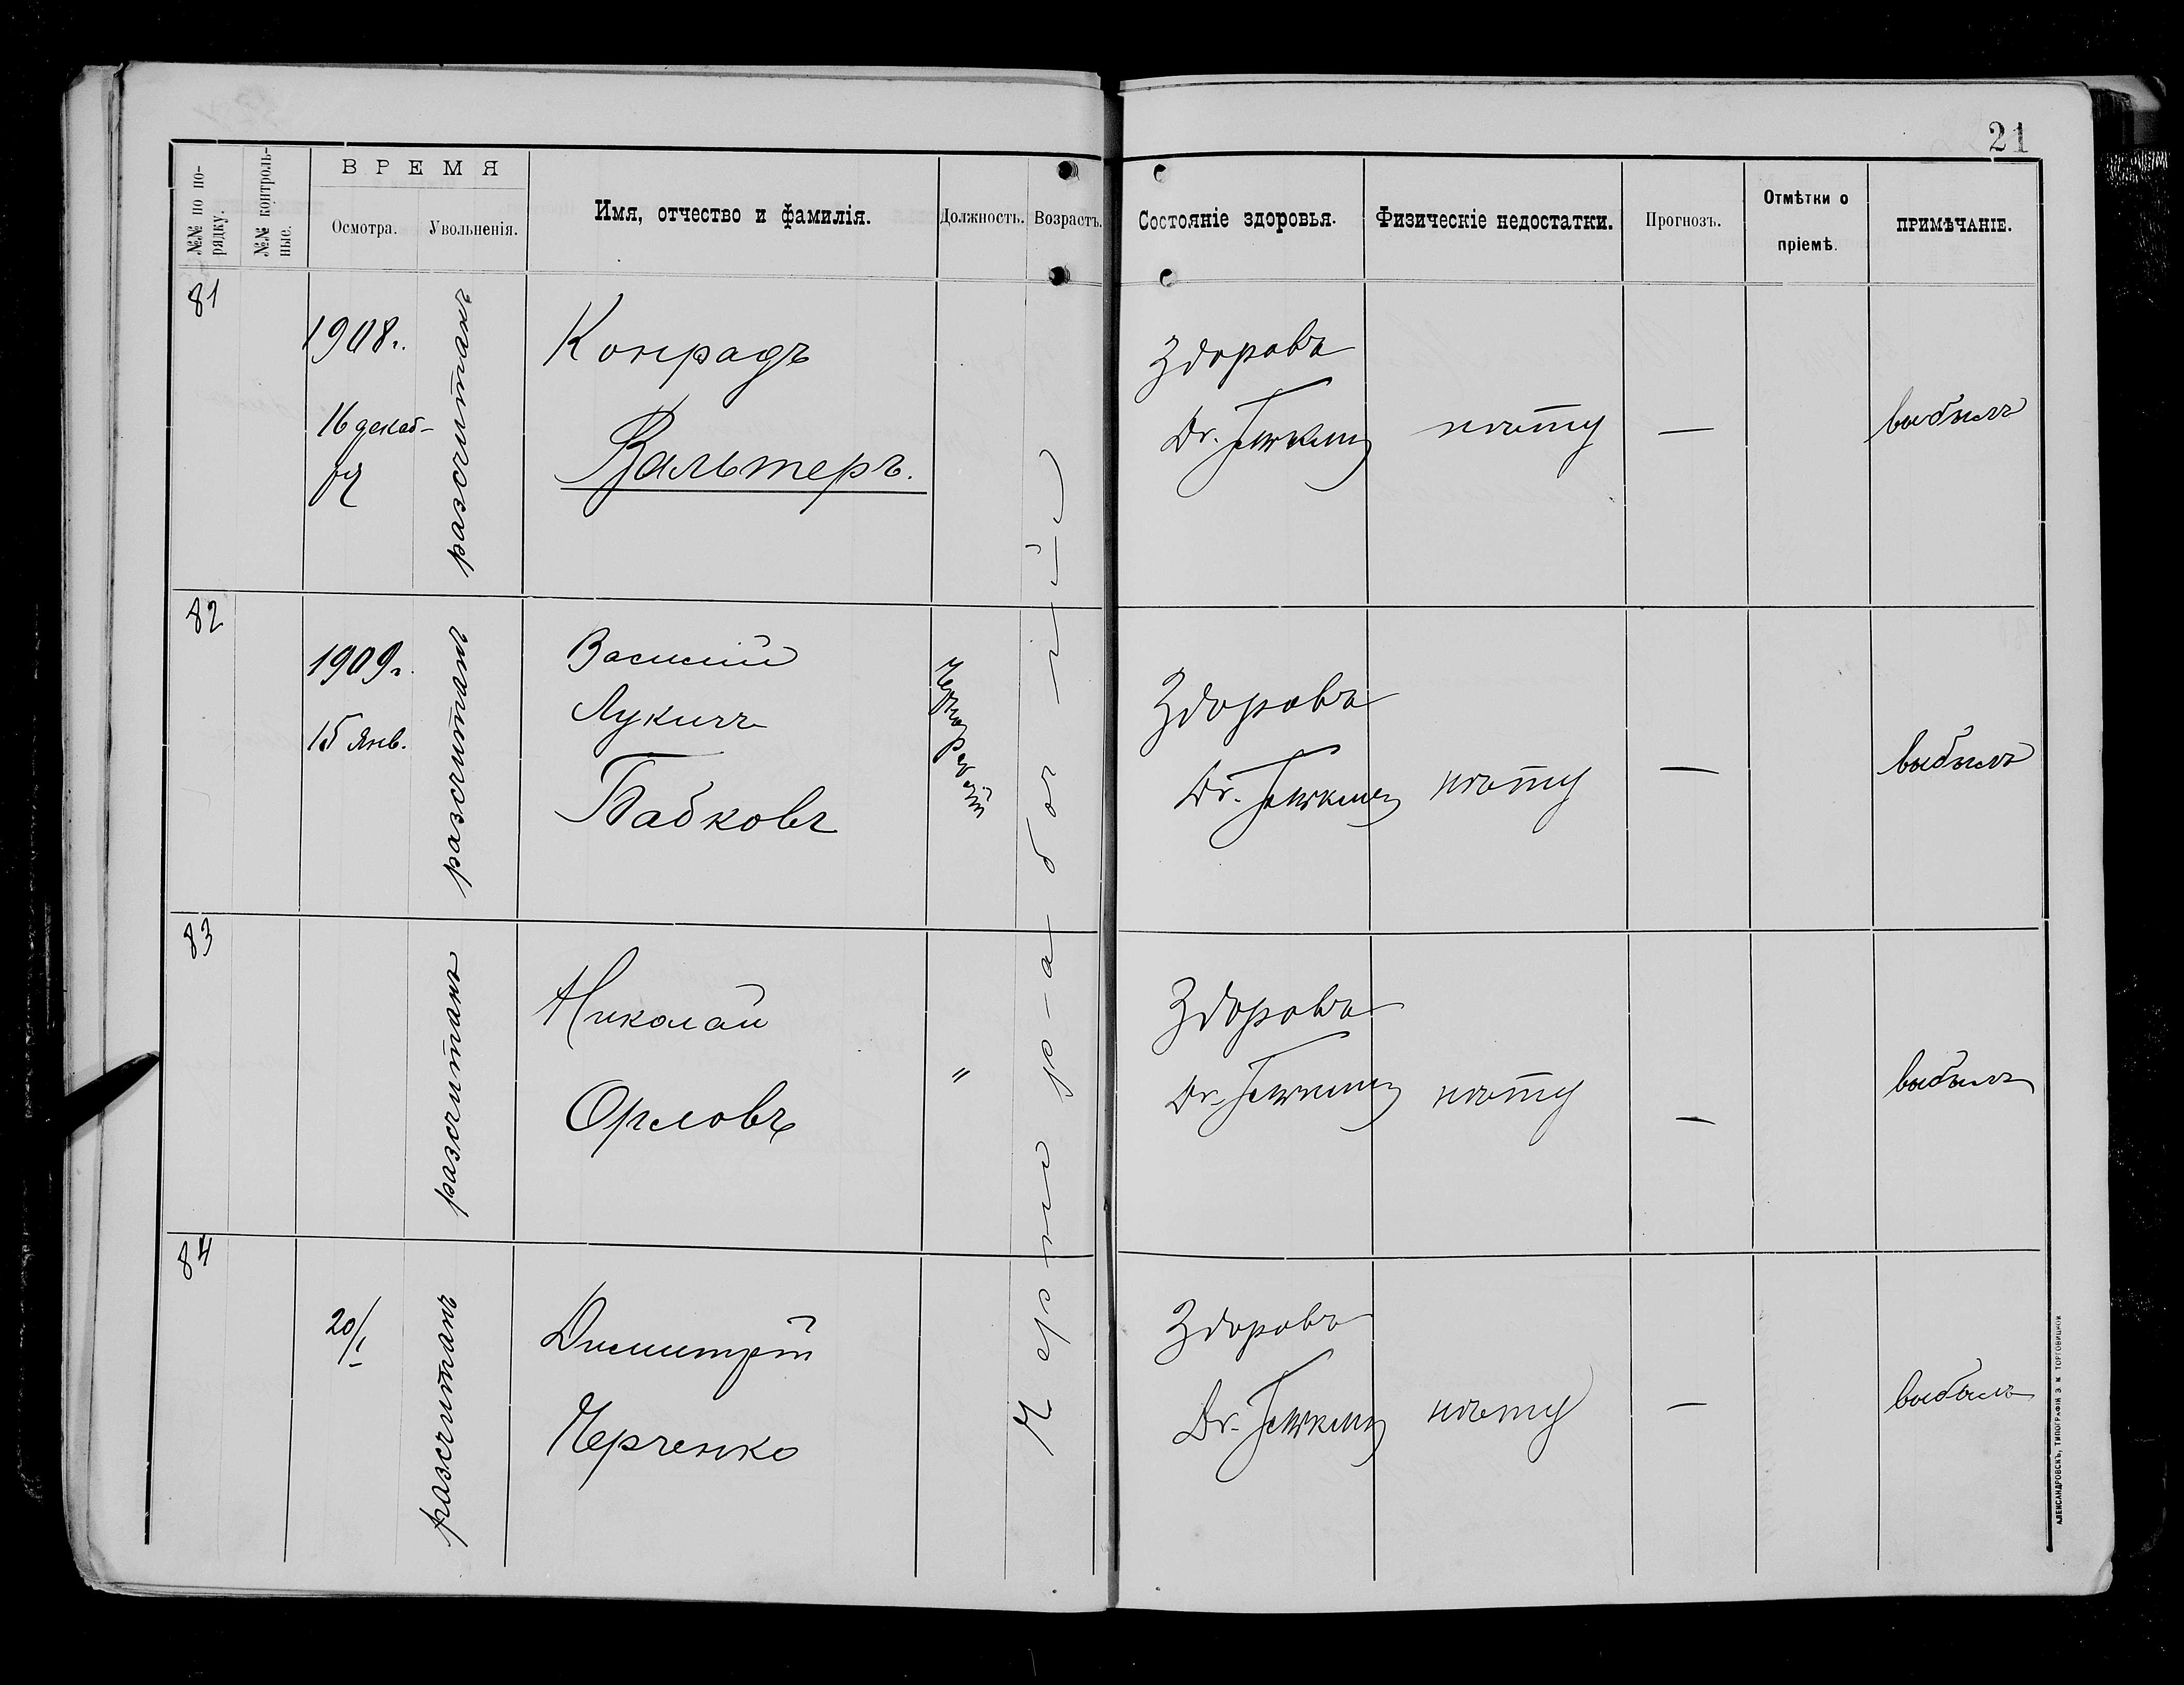 21
№№ по по-
рядку.
№№ контроль-
ные.
ВРЕМЯ
Осмотра.
Увольненія.
Имя, отчество и фамилія.
Должность.
Возрастъ.
Состояніе здоровья.
Физическіе недостатки.
Прогнозъ.
Отмѣтки о
пріемѣ.
ПРИМѢЧАНІЕ.
81
1908г.
16 декаб-
ря
разсчитанъ
Конрадъ
Вальтеръ.
Здоровъ
Dr.
нѣту
—
выбылъ
82
1909г.
15 янв.
разсчитанъ
Василій
Лукичъ
Бабковъ
Чернорабочій
Здоровъ
Dr.
нѣту
—
выбылъ
83
разсчитанъ
Николай
Орловъ
"
Здоровъ
Dr.
нѣту
—
выбылъ
84
20/I
разсчитанъ
Димитрій
Черченко
Здоровъ
Dr.
нѣту
—
выбылъ
Чернорабочій
АЛЕКСАНДРОВСКЪ, ТИПОГРАФІЯ Э. М. ТОРГОВИЦКОЙ